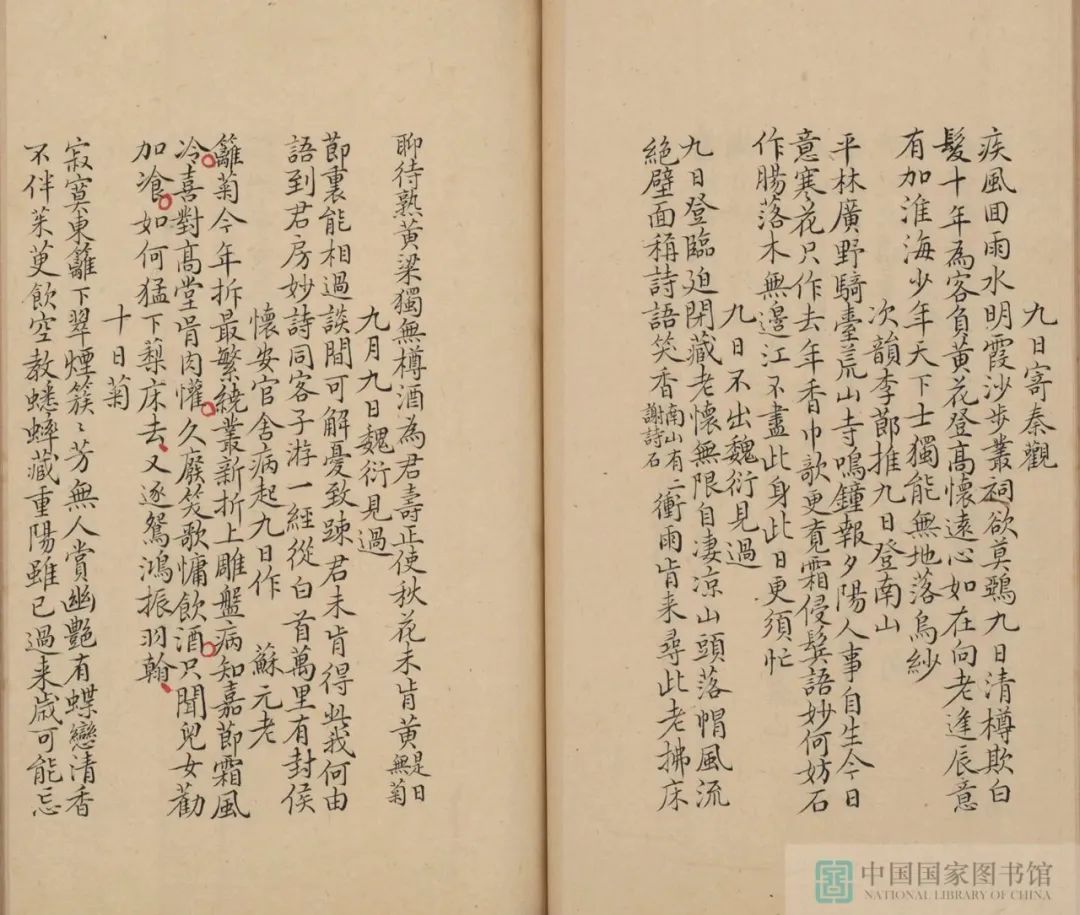 九日寄秦觀
疾風回雨水明霞沙步叢祠欲莫鵶九日清樽欺白
髮十年為客負黃花登高懷遠心如在向老逢辰意
有加淮海少年天下士獨能無地落烏紗
次韻李節推九日登南山
平林廣野騎臺荒山寺鳴鐘報夕陽人事自生今日
意寒花只作去年香巾歌更覺霜侵鬂語妙何妨石
作腸落木無邊江不盡此身此日更須忙
九日不出魏衍見過
九日登臨迫閉藏老懷無限自凄凉山頭落帽風流
絕壁面稱詩語笑香南山有二謝詩石衝雨肯来尋此老拂床
聊待熟黃梁獨無樽酒為君壽正使秋花未肯黃是日無菊
九月九日魏衍見過
節裏能相過談間可解憂致踈君未肯得此我何由
語到君房妙詩同客子游一經從白首萬里有封侯
懷安官舍病起九日作 蘇元老
籬菊今年折最繁繞叢新折上雕盤病知嘉節霜風
冷喜對高堂骨肉懽久廢笑歌慵飲酒只聞兒女勸
加飡如何猛下藜床去又逐鴛鴻振羽翰
十日菊
寂寞東籬下翠煙簇〻芳無人賞幽艷有蝶戀清香
不伴茱萸飲空教蟋蟀藏重陽雖已過来歲可能忘
中国国家图书馆
NATIONAL LIBRARY OF CHINA